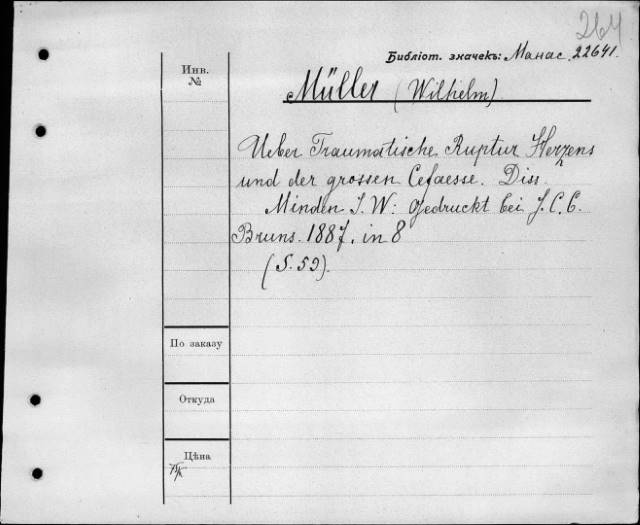 264
Библіот. значекъ: Манас. 22641.
Инв.
№
Müller (Wilhelm)
Ueber Traumatische Ruptur Herzens
und der grossen Gefaesse. Diss.
Minden I. W: Gedruckt bei J. C. C.
Bruns. 1887. in 8
(S. 52).
По заказу
Откуда
Цѣна